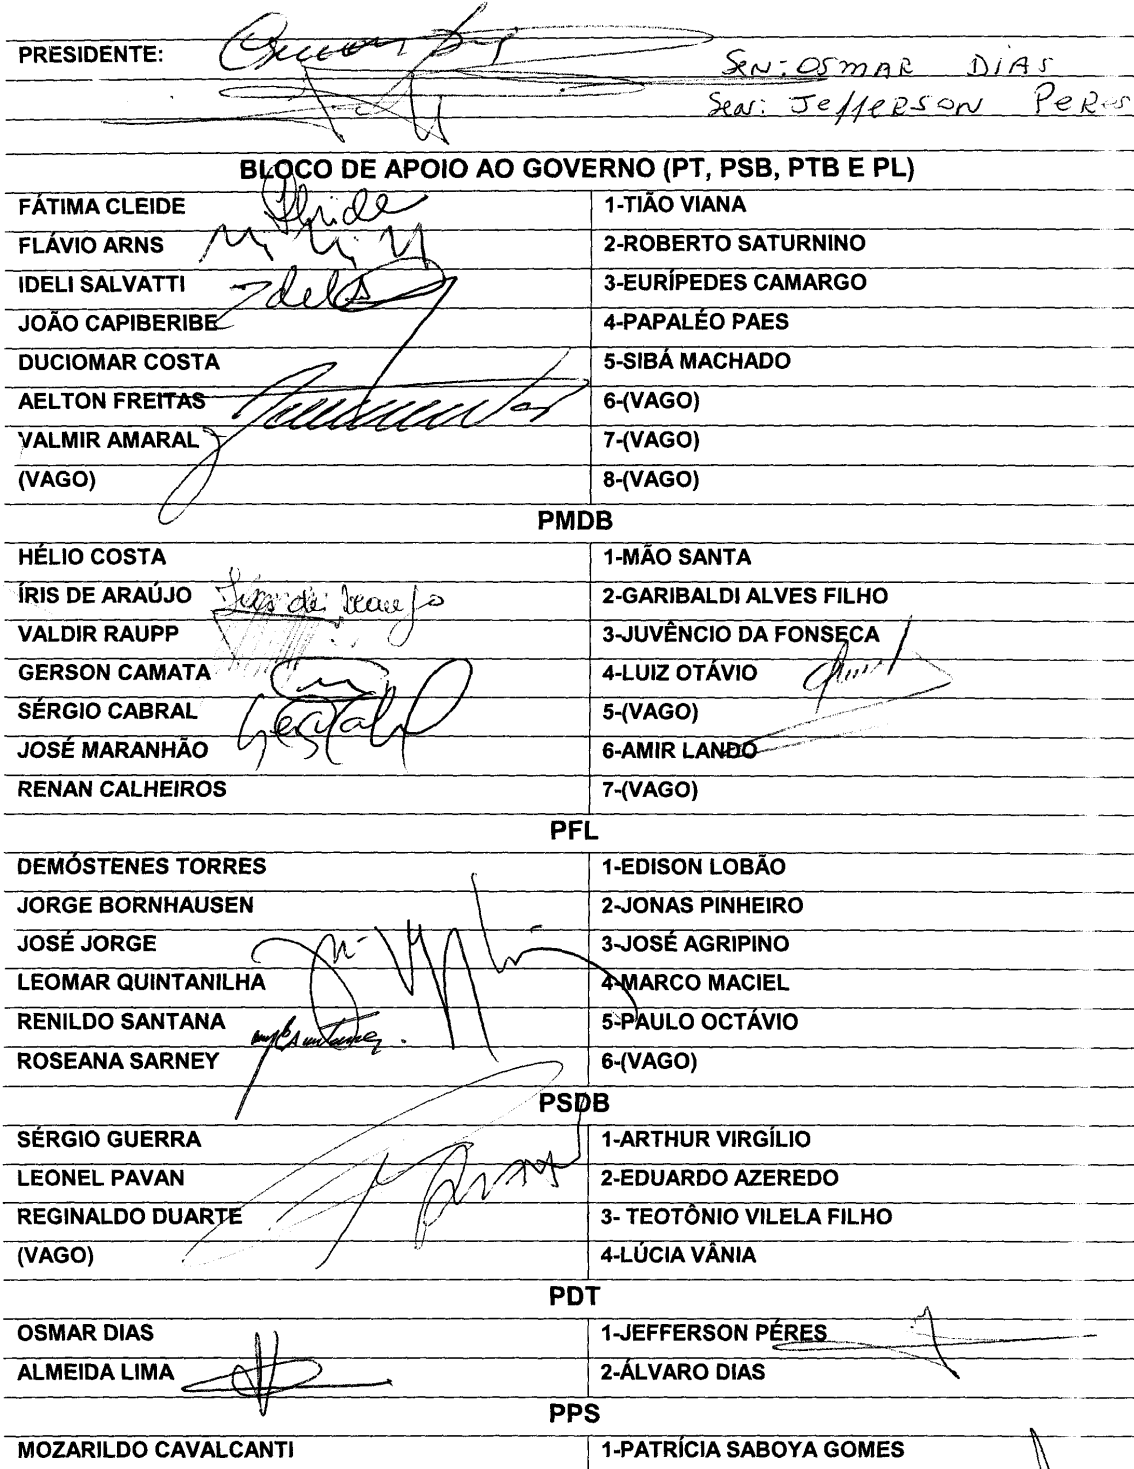 PRESIDENTE:
SEN: OSMAR DIAS
Sen: JeffeRSON PeReS
BLOCO DE APOIO AO GOVERNO (PT, PSB, PTB E PL)
FÁTIMA CLEIDE Cleide 1-TIÃO VIANA
FLÁVIO ARNS 2-ROBERTO SATURNINO
IDELI SALVATTI Ideli 3-EURÍPEDES CAMARGO
JOÃO CAPIBERIBE 4-PAPALÉO PAES
DUCIOMAR COSTA 5-SIBÁ MACHADO
AELTON FREITAS 6-(VAGO)
VALMIR AMARAL 7-(VAGO)
(VAGO) 8-(VAGO)
PMDB
HÉLIO COSTA 1-MÃO SANTA
ÍRIS DE ARAÚJO Íris de Araujo 2-GARIBALDI ALVES FILHO
VALDIR RAUPP 3-JUVÊNCIO DA FONSECA
GERSON CAMATA 4-LUIZ OTÁVIO
SÉRGIO CABRAL 5-(VAGO)
JOSÉ MARANHÃO 6-AMIR LANDO
RENAN CALHEIROS 7-(VAGO)
PFL
DEMÓSTENES TORRES 1-EDISON LOBÃO
JORGE BORNHAUSEN 2-JONAS PINHEIRO
JOSÉ JORGE 3-JOSÉ AGRIPINO
LEOMAR QUINTANILHA 4-MARCO MACIEL
RENILDO SANTANA 5-PAULO OCTÁVIO
ROSEANA SARNEY 6-(VAGO)
PSDB
SÉRGIO GUERRA 1-ARTHUR VIRGÍLIO
LEONEL PAVAN 2-EDUARDO AZEREDO
REGINALDO DUARTE 3- TEOTÔNIO VILELA FILHO
(VAGO) 4-LÚCIA VÂNIA
PDT
OSMAR DIAS 1-JEFFERSON PÉRES
ALMEIDA LIMA 2-ÁLVARO DIAS
PPS
MOZARILDO CAVALCANTI 1-PATRÍCIA SABOYA GOMES